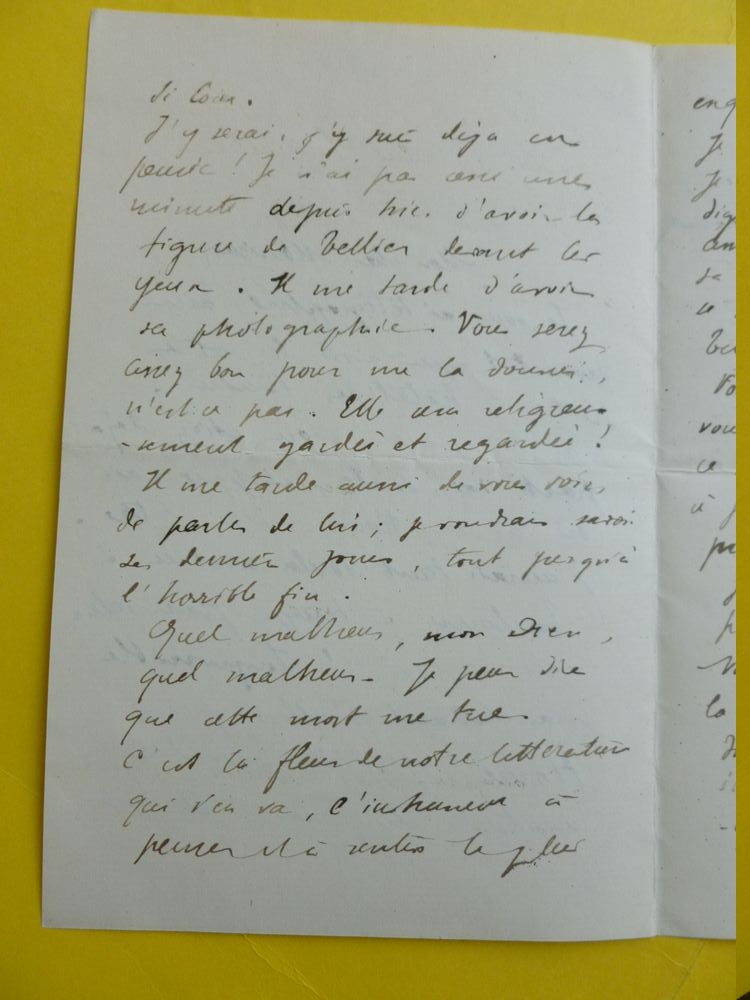 si loin.
J'y serai, j'y suis déjà en
pensée ! Je n'ai pas cessé une
minute depuis hier d'avoir la
figure de Tellier devant les
yeux. Il me tarde d'avoir
sa photographie. Vous serez
assez bon pour me la donner,
n'est-ce pas. Elle sera religieu-
-sement gardée et regardée !
Il me tarde aussi de vous voir,
de parler de lui ; je voudrais savoir
ses derniers jours, tout jusqu'à
l'horrible fin.
Quel malheur, mon Dieu,
quel malheur - Je peux dire
que cette mort me tue.
C'est la fleur de notre littérature
qui s'en va, c'est à
penser et à sentir
enq
Je
Je
dig
am
sa
ce
Vo
vou
ce
à
la